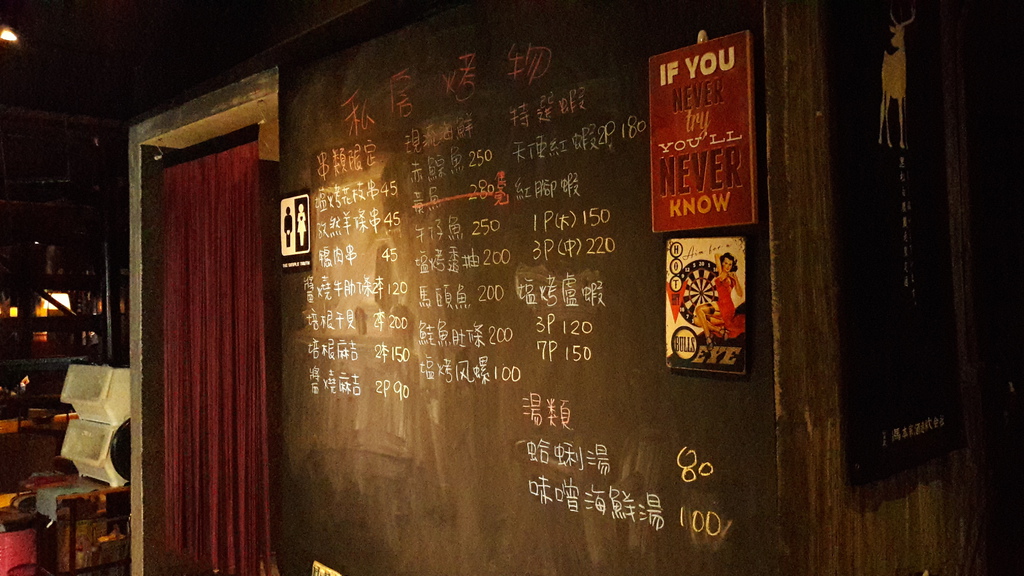 私房烤物
串類限定
鹽烤花枝串45
孜然羊條串45
鴨肉串 45
醬燒牛肋條2本120
培根干貝 2本200
培根麻吉 2本150
醬燒麻吉 2P 90
現流海鮮
赤鯮魚250
280
午仔魚 250
鹽烤 200
馬頭魚 200
鮭魚肚條200
鹽烤风螺100
特選蝦
天使紅蝦2P180
紅腳蝦
1P(大)150
3P(中)220
鹽烤盧蝦
3P 120
7P 150
湯類
蛤蜊湯 80
味噌海鮮湯 100
IF YOU
NEVER
try
YOU'LL
NEVER
KNOW
HOT
BULLS
EYE